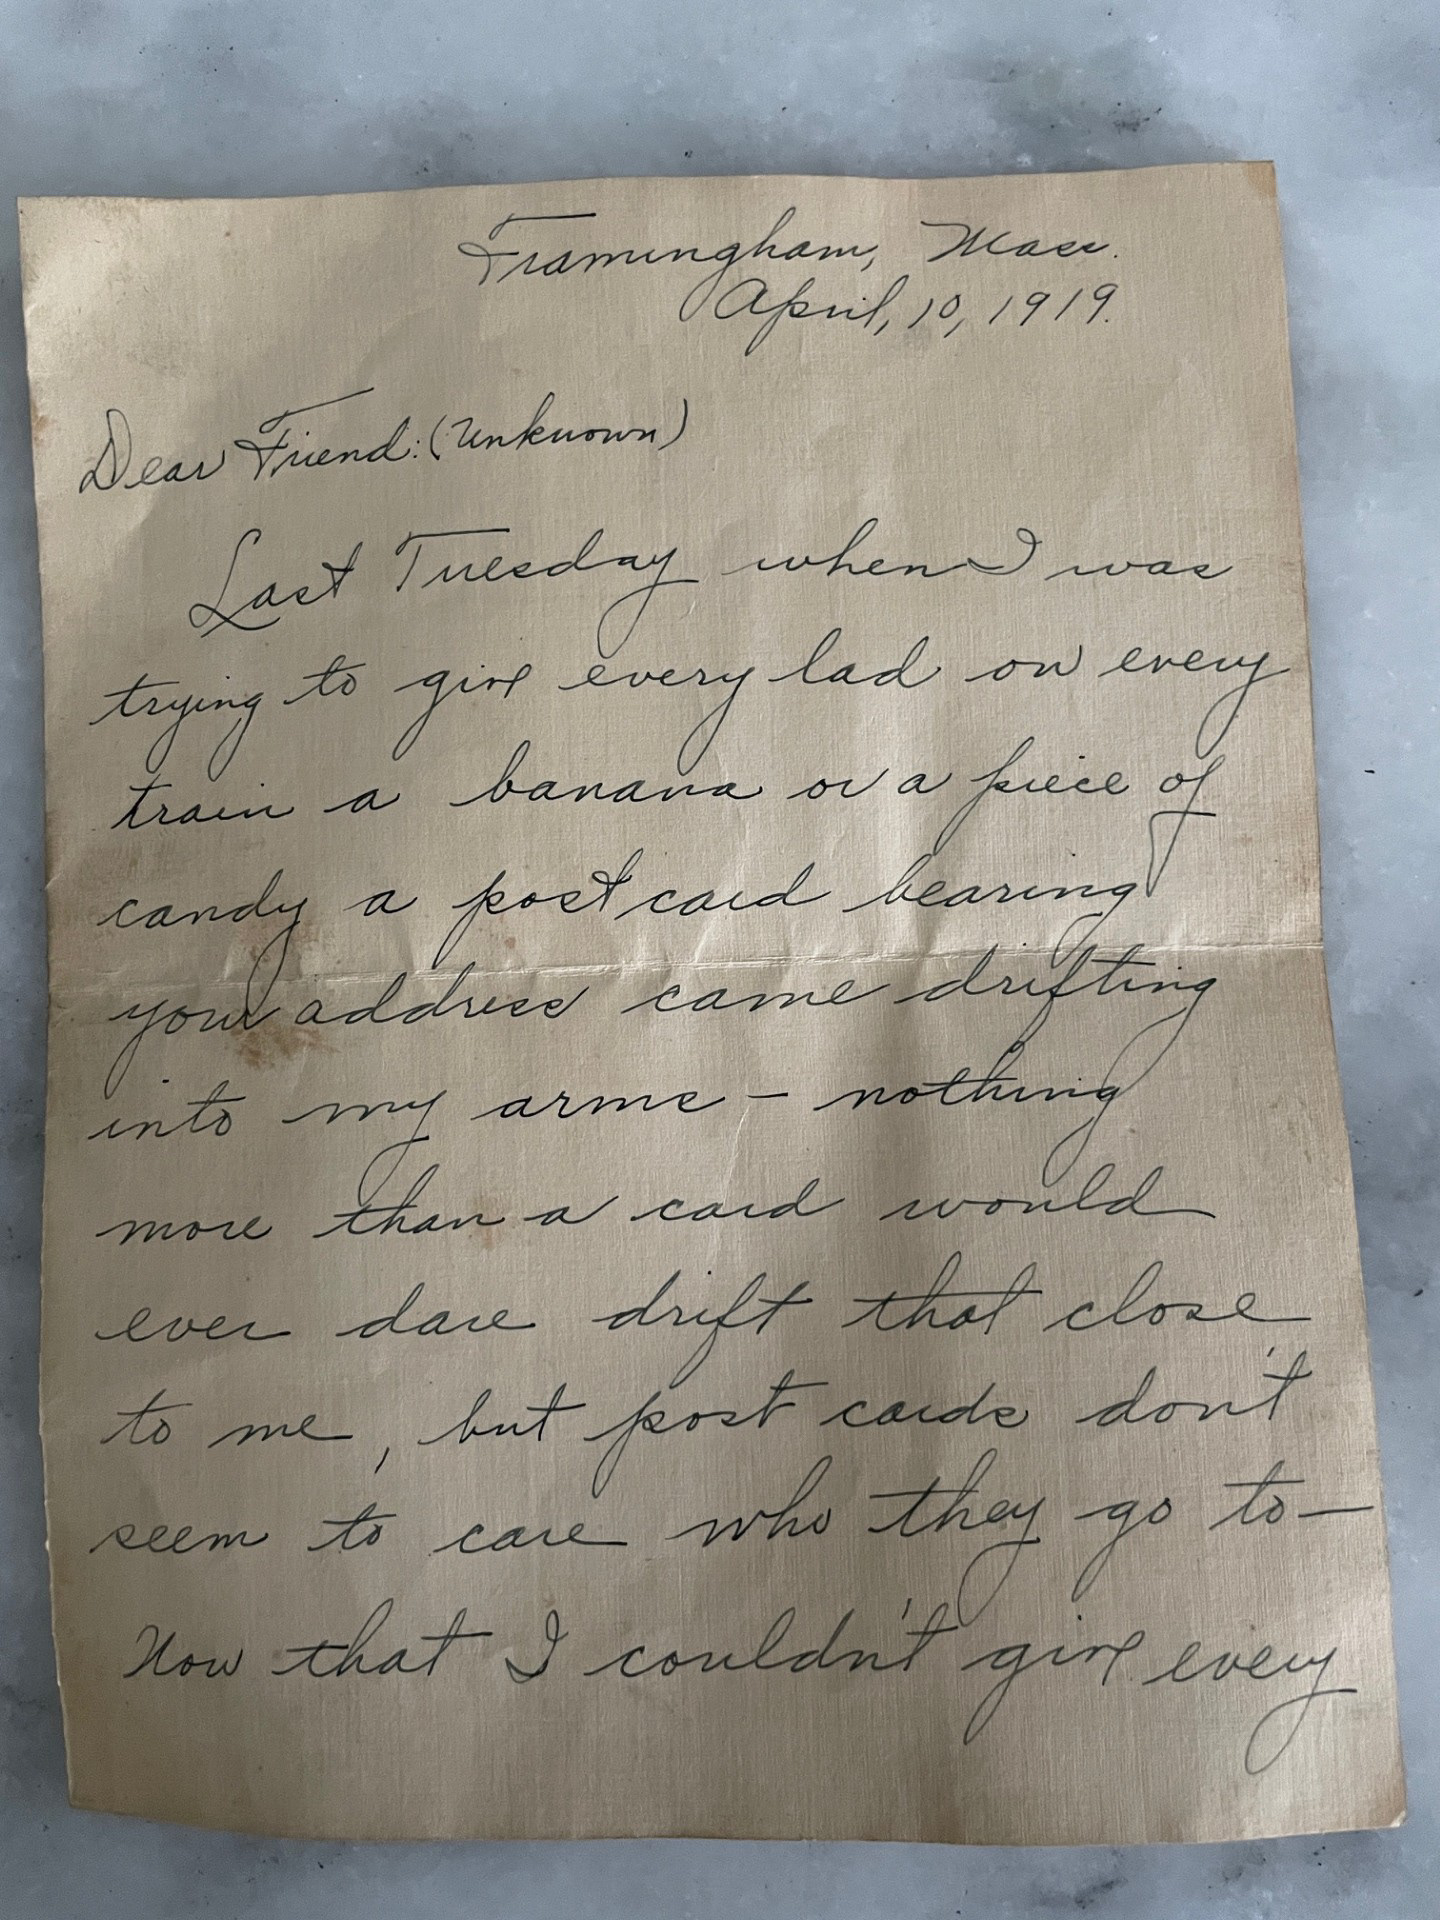 Framingham, Mass.
April, 10, 1919.
Dear Friend: (Unknown)
Last Tuesday when I was
trying to give every lad on every
train a banana or a piece of
candy a postcard bearing
your address came drifting
into my arms - nothing
more than a card would
ever dare drift that close
to me, but post cards don't
seem to care who they go to-
Now that I couldn't give every